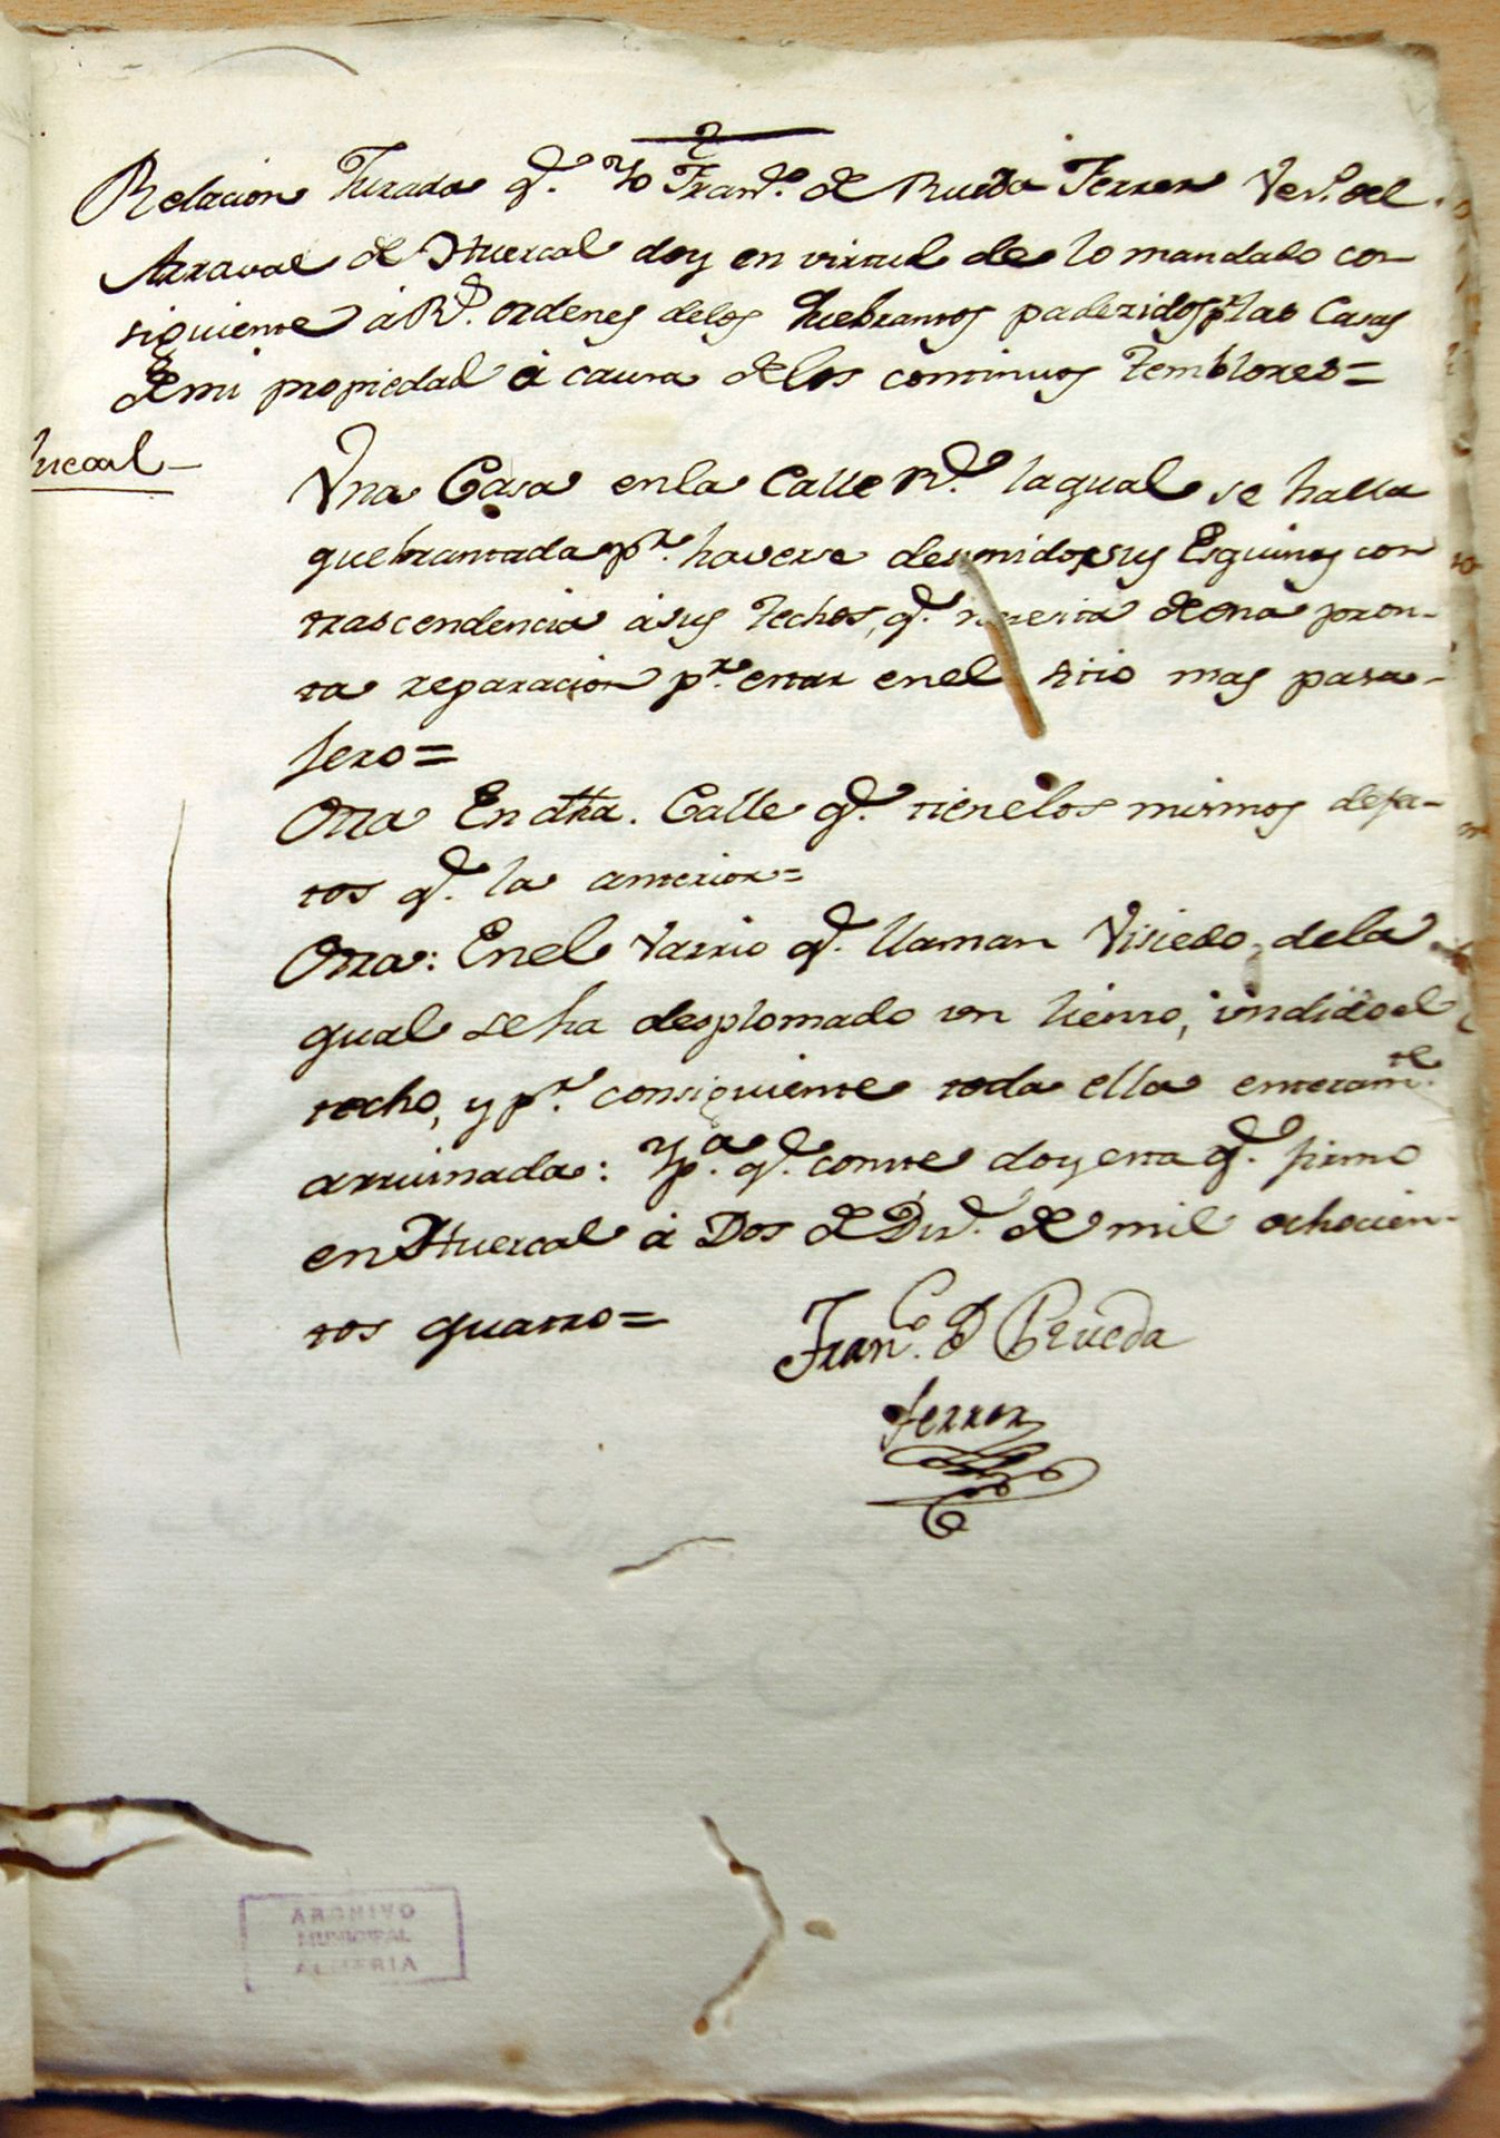 Relacion Jurada q.e Yo Fran.co de Rueda Ferrer Vez.o del
Arraval de Huercal doy en virtud de lo mandado con
siguiente á R.s ordenes delos quebrantos padezidos p.r las Casas
de mi propiedad á causa de los continuos temblores=
Vna Casa en la Calle R.l la qual se halla
quebrantada p.r haverse desunido sus Esquinas con
trascendencia á sus techos, q.e nesesita de una pron-
ta reparacion p.r estar en el sitio mas pasa-
jero=
Otra En dha. Calle q.e tiene los mismos defec-
tos q.e la anterior=
Otra: En el Varrio q.e llaman Visiedo, de la
qual se ha desplomado un lienso, undido el
techo, y p.r consiguiente toda ella enteram.te
arruinada: Y p.a q.e conste doy esta q.e firmo
en Huercal á Dos de Dic.e de mil ochocien-
tos quatro=
Fran.co D Rueda
Ferrer
ARCHIVO
MUNICIPAL
ALMERIA